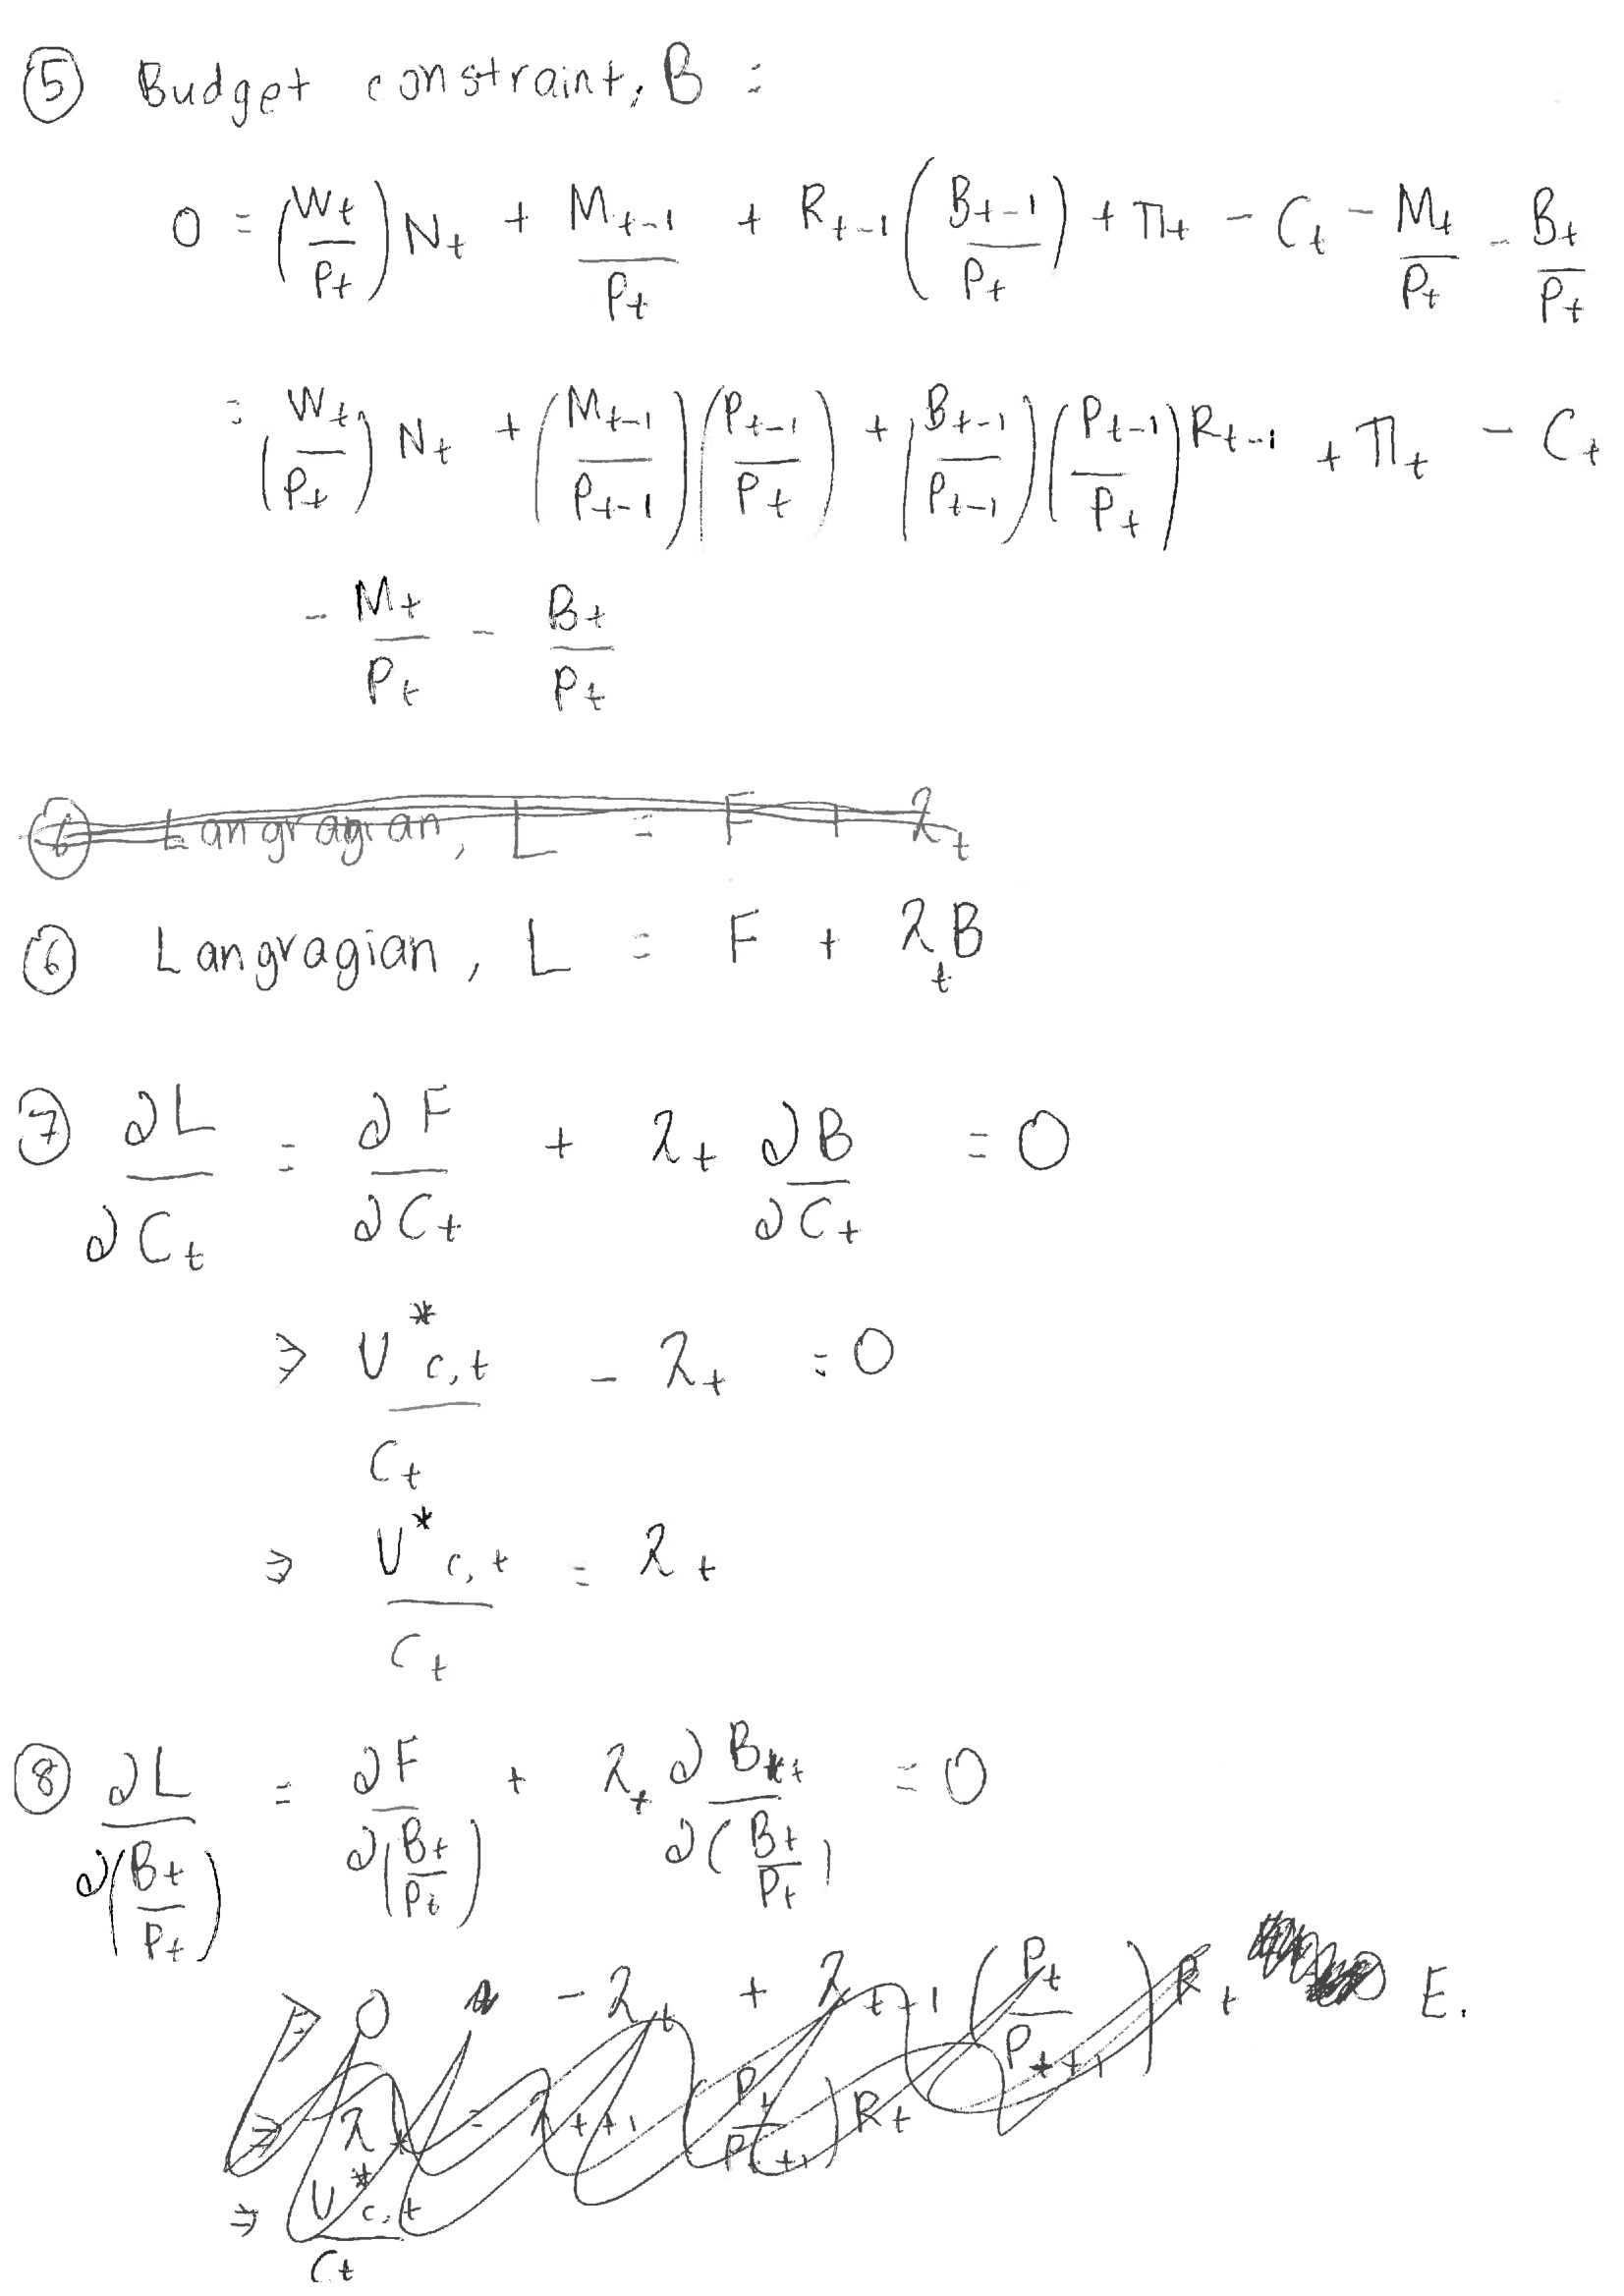 ⑤ Budget constraint, B :
0 = (W_t/P_t) N_t + M_{t-1}/P_t + R_{t-1} (B_{t-1}/P_t) + Π_t - C_t - M_t/P_t - B_t/P_t
= (W_t/P_t) N_t + (M_{t-1}/P_{t-1}) (P_{t-1}/P_t) + (B_{t-1}/P_{t-1}) (P_{t-1}/P_t) R_{t-1} + Π_t - C_t
- M_t/P_t - B_t/P_t
⑥ Langragian, L = F + λ_t
⑥ Langragian, L = F + λ_t B
⑦ ∂L/∂C_t = ∂F/∂C_t + λ_t ∂B/∂C_t = 0
⇒ U*_{c,t}/C_t - λ_t = 0
⇒ U*_{c,t}/C_t = λ_t
⑧ ∂L/∂(B_t/P_t) = ∂F/∂(B_t/P_t) + λ_t ∂B/∂(B_t/P_t) = 0
⇒ 0 - λ_t + λ_{t+1} (P_t/P_{t+1}) R_t E.
⇒ λ_t = λ_{t+1} (P_t/P_{t+1}) R_t
⇒ U*_{c,t}/C_t